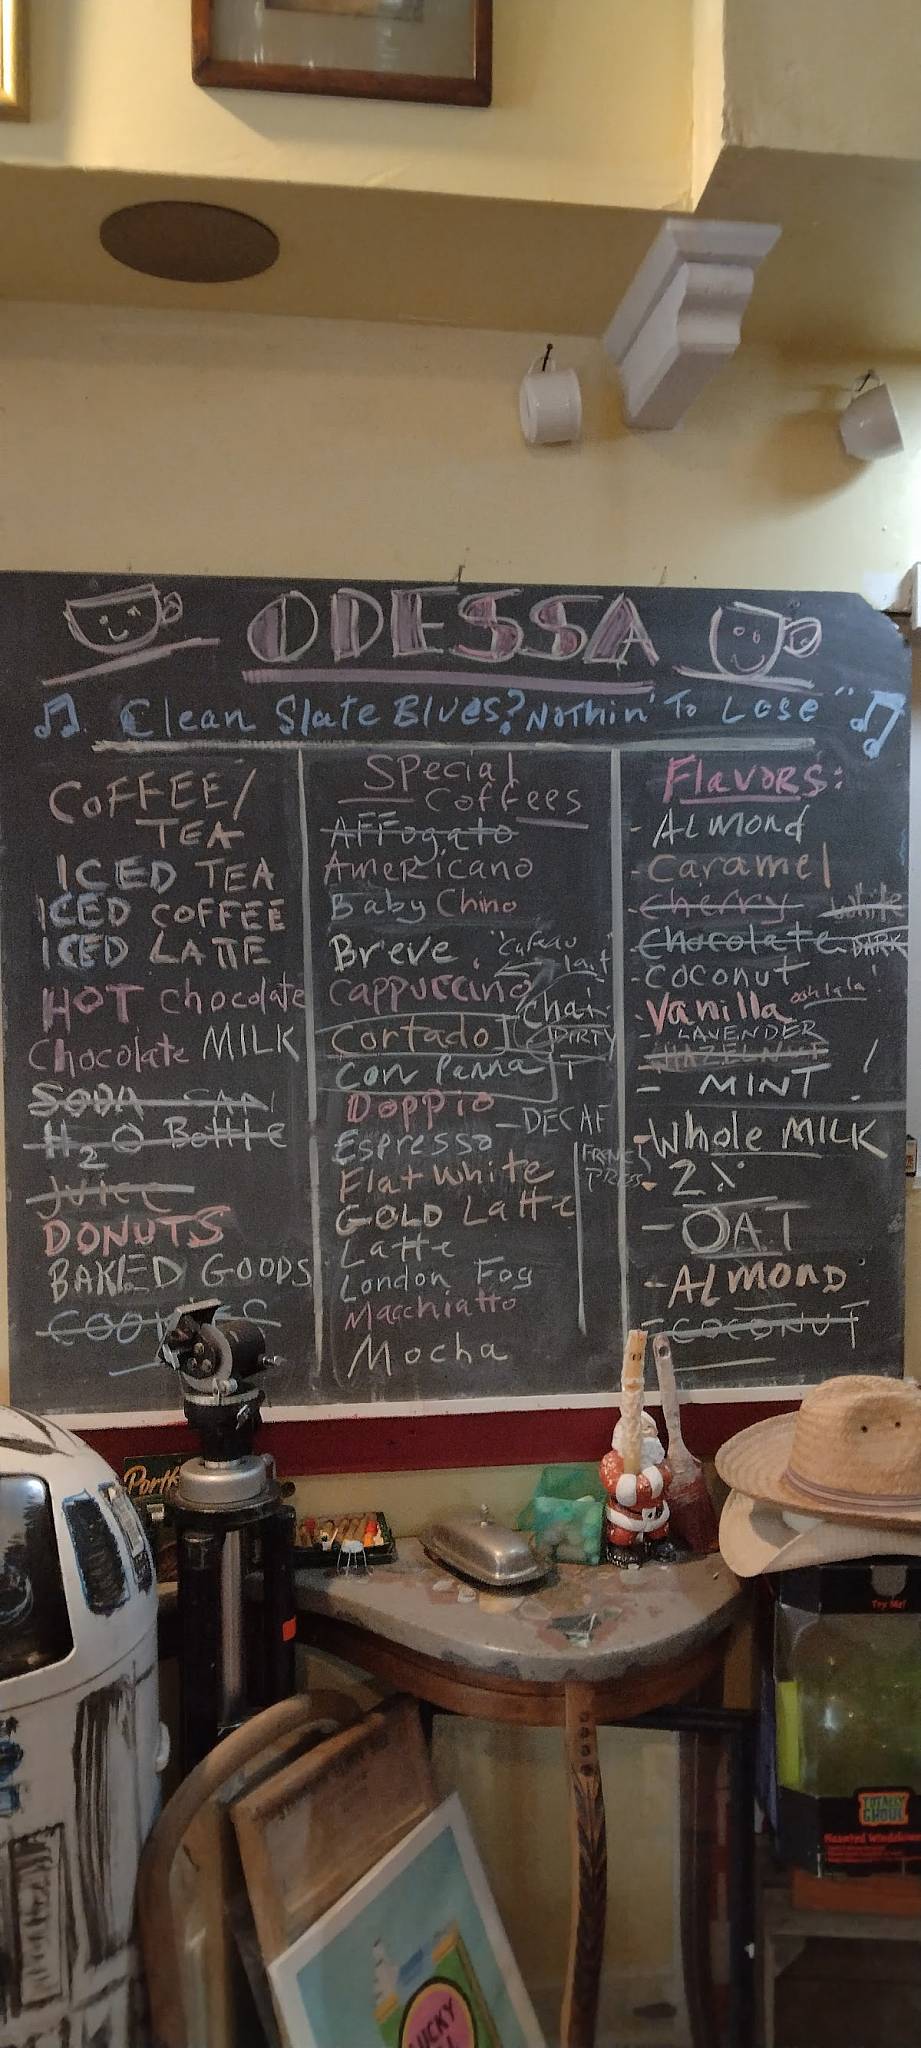 ODESSA
Clean Slate Blues? Nothin' To Lose"
COFFEE/
TEA
ICED TEA
ICED COFFEE
ICED LATTE
HOT Chocolate
Chocolate MILK
SODA CAN
H2O Bottle
JUICE
DONUTS
BAKED GOODS
COOKIES
SPecial
Coffees
AFFogato
AmeRicano
Baby Chino
Breve
"Cafe au
lait"
CAPPuccino
Chai
DIRTY
Cortado
Con Panna
Doppio
- DECAF
Espresso
FRENCH
PRESS
Flat White
GOLD Latte
Latte
London Fog
Macchiatto
Mocha
FlavoRs:
- ALMOND
- Caramel
- Cherry
White
- Chocolate DARK
- Coconut
- Vanilla ooh lala!
- LAVENDER
- HAZELNUT
- MINT !
- Whole MILK
- 2%
- OAT
- ALMOND
- COCONUT
Try Me!
TOTALLY
GHOUL
Haunted
LUCKY